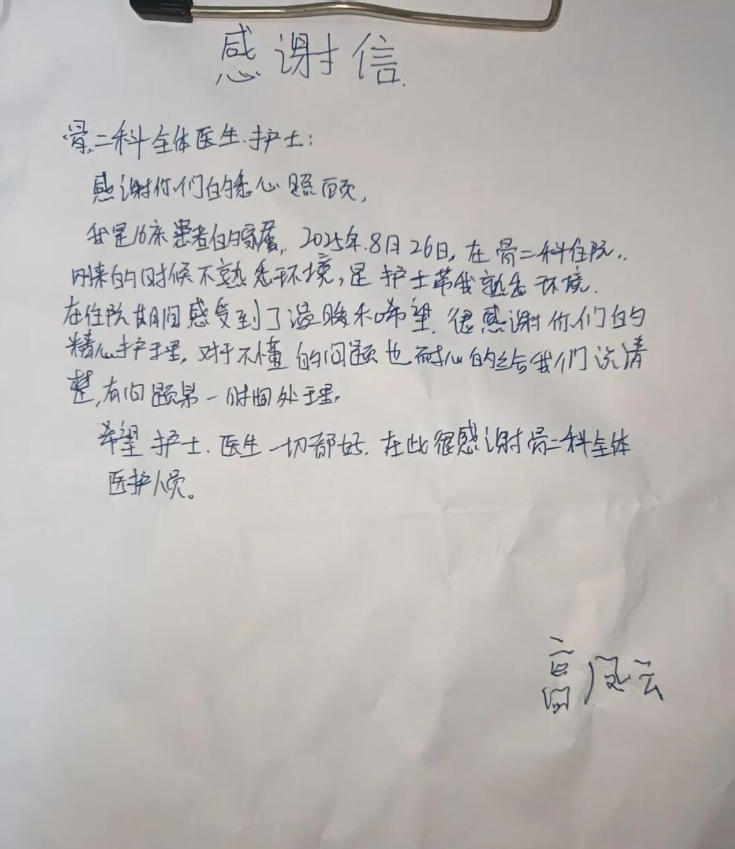 感谢信
骨二科全体医生、护士：
感谢你们的悉心照顾，
我是16床患者的家属，2025年8月26日，在骨二科住院，
刚来的时候不熟悉环境，是护士带我熟悉环境.
在住院期间感受到了温暖和希望.很感谢你们的
精心护理，对于不懂的问题也耐心的给我们说清
楚，有问题第一时间处理。
希望护士、医生一切都好.在此很感谢骨二科全体
医护人员。
高凤云